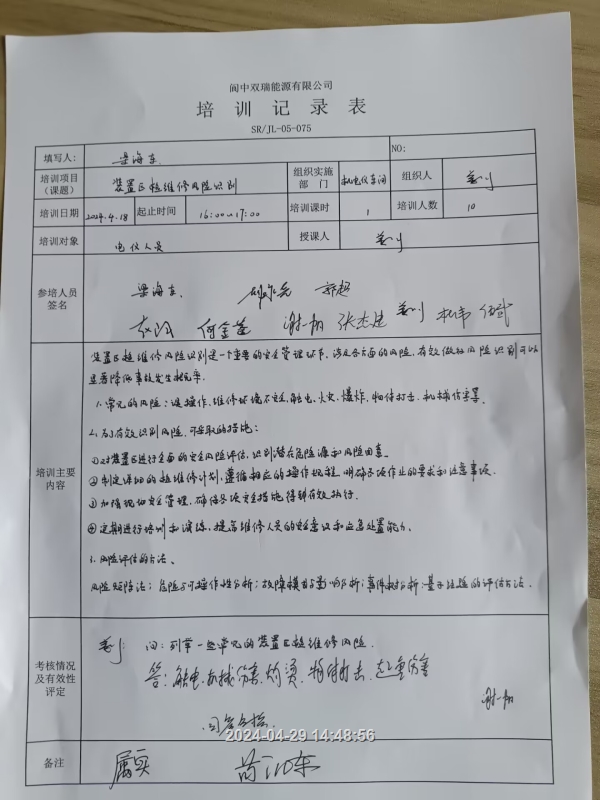 阆中双瑞能源有限公司
培训记录表
SR/JL-05-075
填写人： 梁海东. NO:
培训项目（课题） 装置区检维修风险识别 组织实施部门 机电仪车间 组织人
培训日期 2024.4.18 起止时间 16:00~17:00 培训课时 1 培训人数 10
培训对象 电仪人员 授课人
参培人员签名 梁海东. 郭超
何金莲 谢翔 张杰 杜伟 伍武
装置区检维修风险识别是一个重要的安全管理环节，涉及各方面的风险，有效做好风险识别可以
显著降低事故发生概率.
1.常见的风险：误操作、维修环境不安全、触电、火灾、爆炸、物体打击、机械伤害等
2.为了有效识别风险，可采取的措施：
培训主要内容
①对装置区进行全面的安全风险评估，识别潜在危险源和风险因素。
②制定详细的检维修计划，遵循相应的操作规程，明确各项作业的要求和注意事项.
③加强现场安全管理，确保各项安全措施得到有效执行.
④定期进行培训和演练，提高维修人员的安全意识和应急处置能力。
3.风险评估的方法、
风险矩阵法；危险与可操作性分析；故障模式与影响分析；事件树分析；基于经验的评估方法.
考核情况及有效性评定 问：列举一些常见的装置区检维修风险.
答：触电、机械伤害、灼烫、物体打击、起重伤害
谢翔
回答合格.
2024-04-29 14:48:56
备注 属实